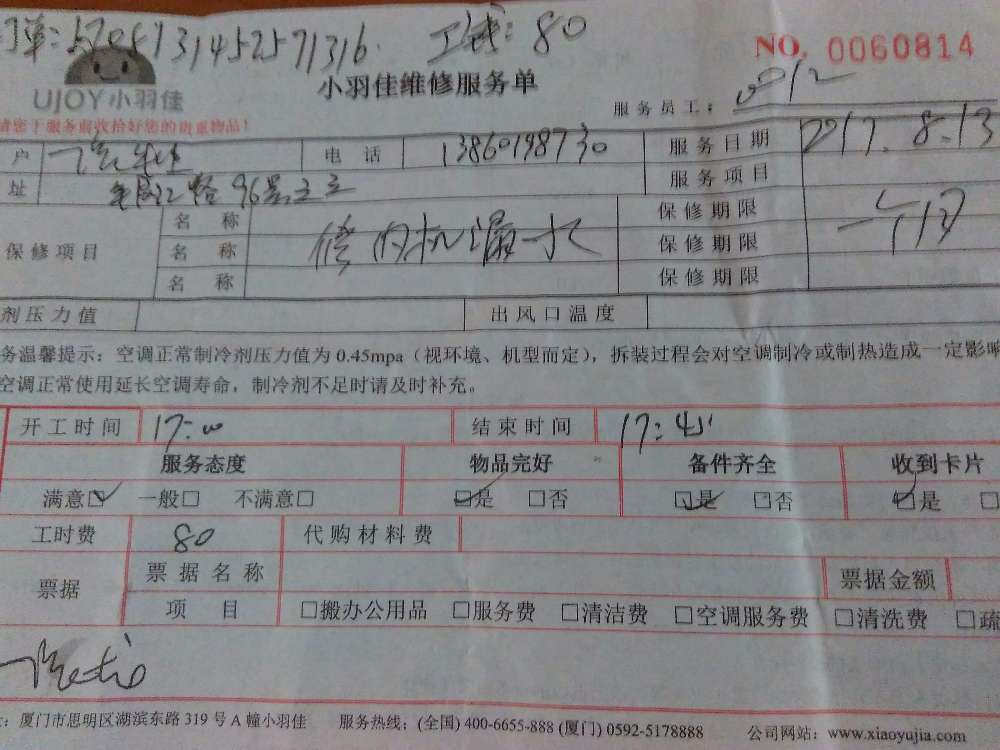 订单: 5705131452571316. 工钱: 80
NO. 0060814
UJOY小羽佳
小羽佳维修服务单
服务员工: 0012
请您于服务前收拾好您的贵重物品!
户 电话 13860198730 服务日期 2017.8.13
址 96号之 服务项目
保修项目 名称 修内机漏水 保修期限 一个月
名称 保修期限
名称 保修期限
剂压力值 出风口温度
务温馨提示: 空调正常制冷剂压力值为 0.45mpa (视环境、机型而定), 拆装过程会对空调制冷或制热造成一定影响
空调正常使用延长空调寿命, 制冷剂不足时请及时补充。
开工时间 17:00 结束时间 17:45
服务态度 物品完好 备件齐全 收到卡片
满意☑ 一般□ 不满意□ ☑是 □否 ☑是 □否 ☑是 □
工时费 80 代购材料费
票据 票据名称 票据金额
项目 □搬办公用品 □服务费 □清洁费 □空调服务费 □清洗费 □疏
: 厦门市思明区湖滨东路 319 号 A 幢小羽佳 服务热线: (全国) 400-6655-888 (厦门) 0592-5178888 公司网站: www.xiaoyujia.com